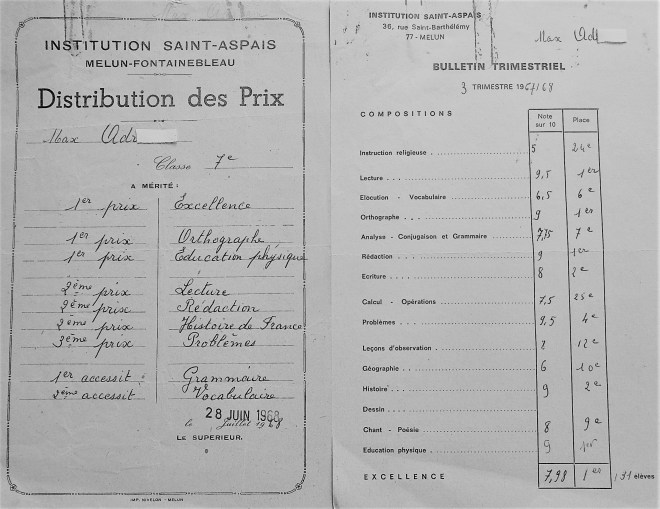 INSTITUTION SAINT-ASPAIS
MELUN-FONTAINEBLEAU
Distribution des Prix
Max Adr
Classe 7e
A MÉRITÉ:
1er prix Excellence
1er prix Orthographe
1er prix Education physique
2ème prix Lecture
2ème prix Rédaction
2ème prix Histoire de France
3ème prix Problèmes
1er accessit Grammaire
2ème accessit Vocabulaire
28 JUIN 1968
le Juillet 1968
LE SUPERIEUR.
MELUN
INSTITUTION SAINT-ASPAIS
36, rue Saint-Barthélémy
77 - MELUN
Max Adr
BULLETIN TRIMESTRIEL
3 TRIMESTRE 1967/68
COMPOSITIONS Note sur 10 Place
Instruction religieuse 5 24e
Lecture 9,5 1er
Elocution - Vocabulaire 6,5 6e
Orthographe 9 1er
Analyse - Conjugaison et Grammaire 7,75 7e
Rédaction 9 1er
Ecriture 8 2e
Calcul - Opérations 7,5 25e
Problèmes 9,5 4e
Leçons d'observation 12e
Géographie 6 10e
Histoire 9 2e
Dessin
Chant - Poésie 8 9e
Education physique 9 1er
EXCELLENCE 7,98 1er / 31 élèves